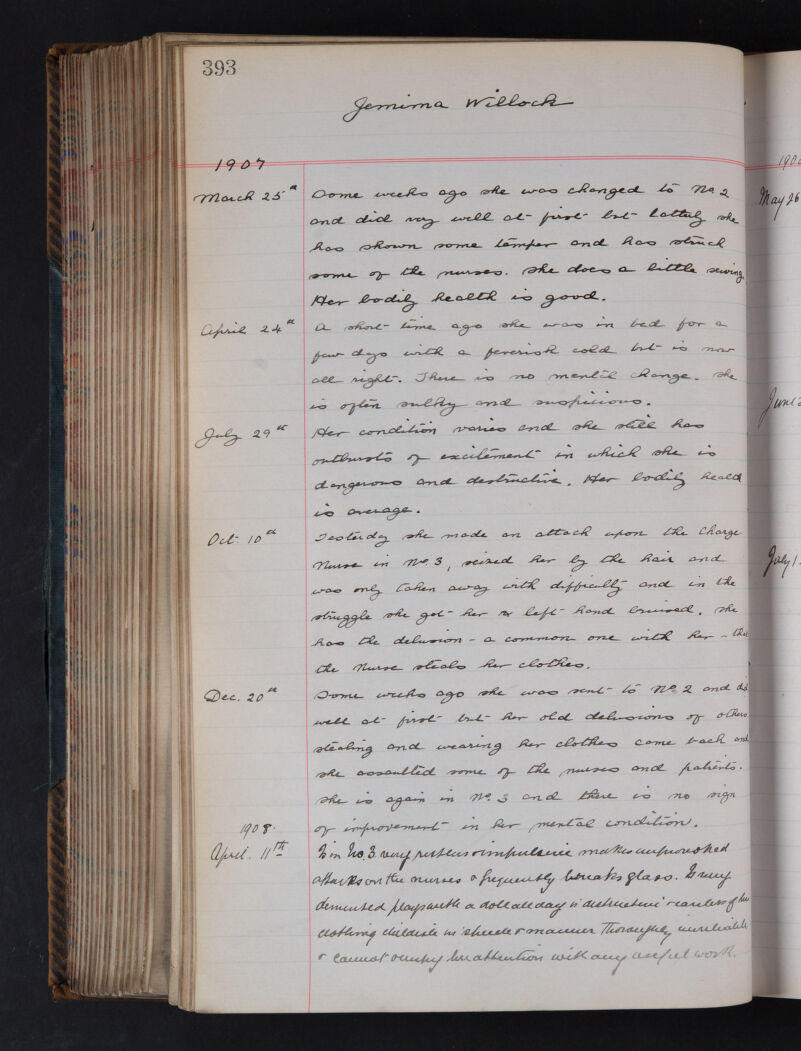 393
Jemima Willock
1907
March 25th Some weeks ago she was changed to No 2
and did very well at first but latterly she
has shown some temper and has struck
some of the nurses. She does a little sewing.
Her bodily health is good.
April 24th A short time ago she was in bed for a
few days with a feverish cold but is now
all right. There is no mental change. She
is often sulky and suspicious.
July 29th Her condition varies and she still has
outbursts of excitement in which she is
dangerous and destructive. Her bodily health
is average.
Oct 10th Yesterday she made an attack upon the Charge
Nurse in No. 3, seized her by the hair and
was only taken away with difficulty and in the
struggle she got her left hand bruised. She
has the delusion - a common one with her - that
the Nurse steals her clothes.
Dec. 20th Some weeks ago she was sent to No. 2 and did
well at first but her old delusions of others
stealing and wearing her clothes came back and
she assaulted some of the nurses and patients.
She is again in No. 3 and there is no sign
of improvement in her mental condition.
1908.
April. 11th Is in No. 3. very restless & impulsive makes unprovoked
attacks on the nurses & frequently breaks glass. Is very
demented plays with a doll all day is destructive & careless of her
clothing childish in speech & manner Thoroughly unreliable
& cannot occupy her attention with any useful work.
190
May 26
June
July 1